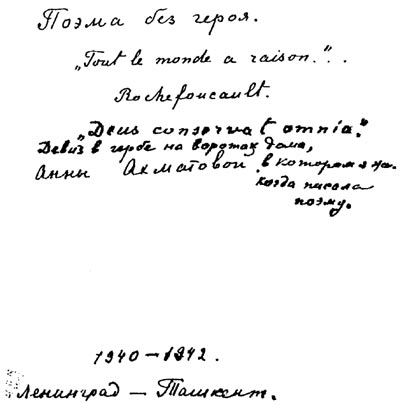 Поэма без героя.
„Tout le monde a raison.“..
Rochefoucault.
„Deus conservat omnia.“
Девиз в гербе на воротах дома,
Анны Ахматовой. в котором я жи.
когда писала
поэму.
1940 — 1942.
Ленинград — Ташкент.